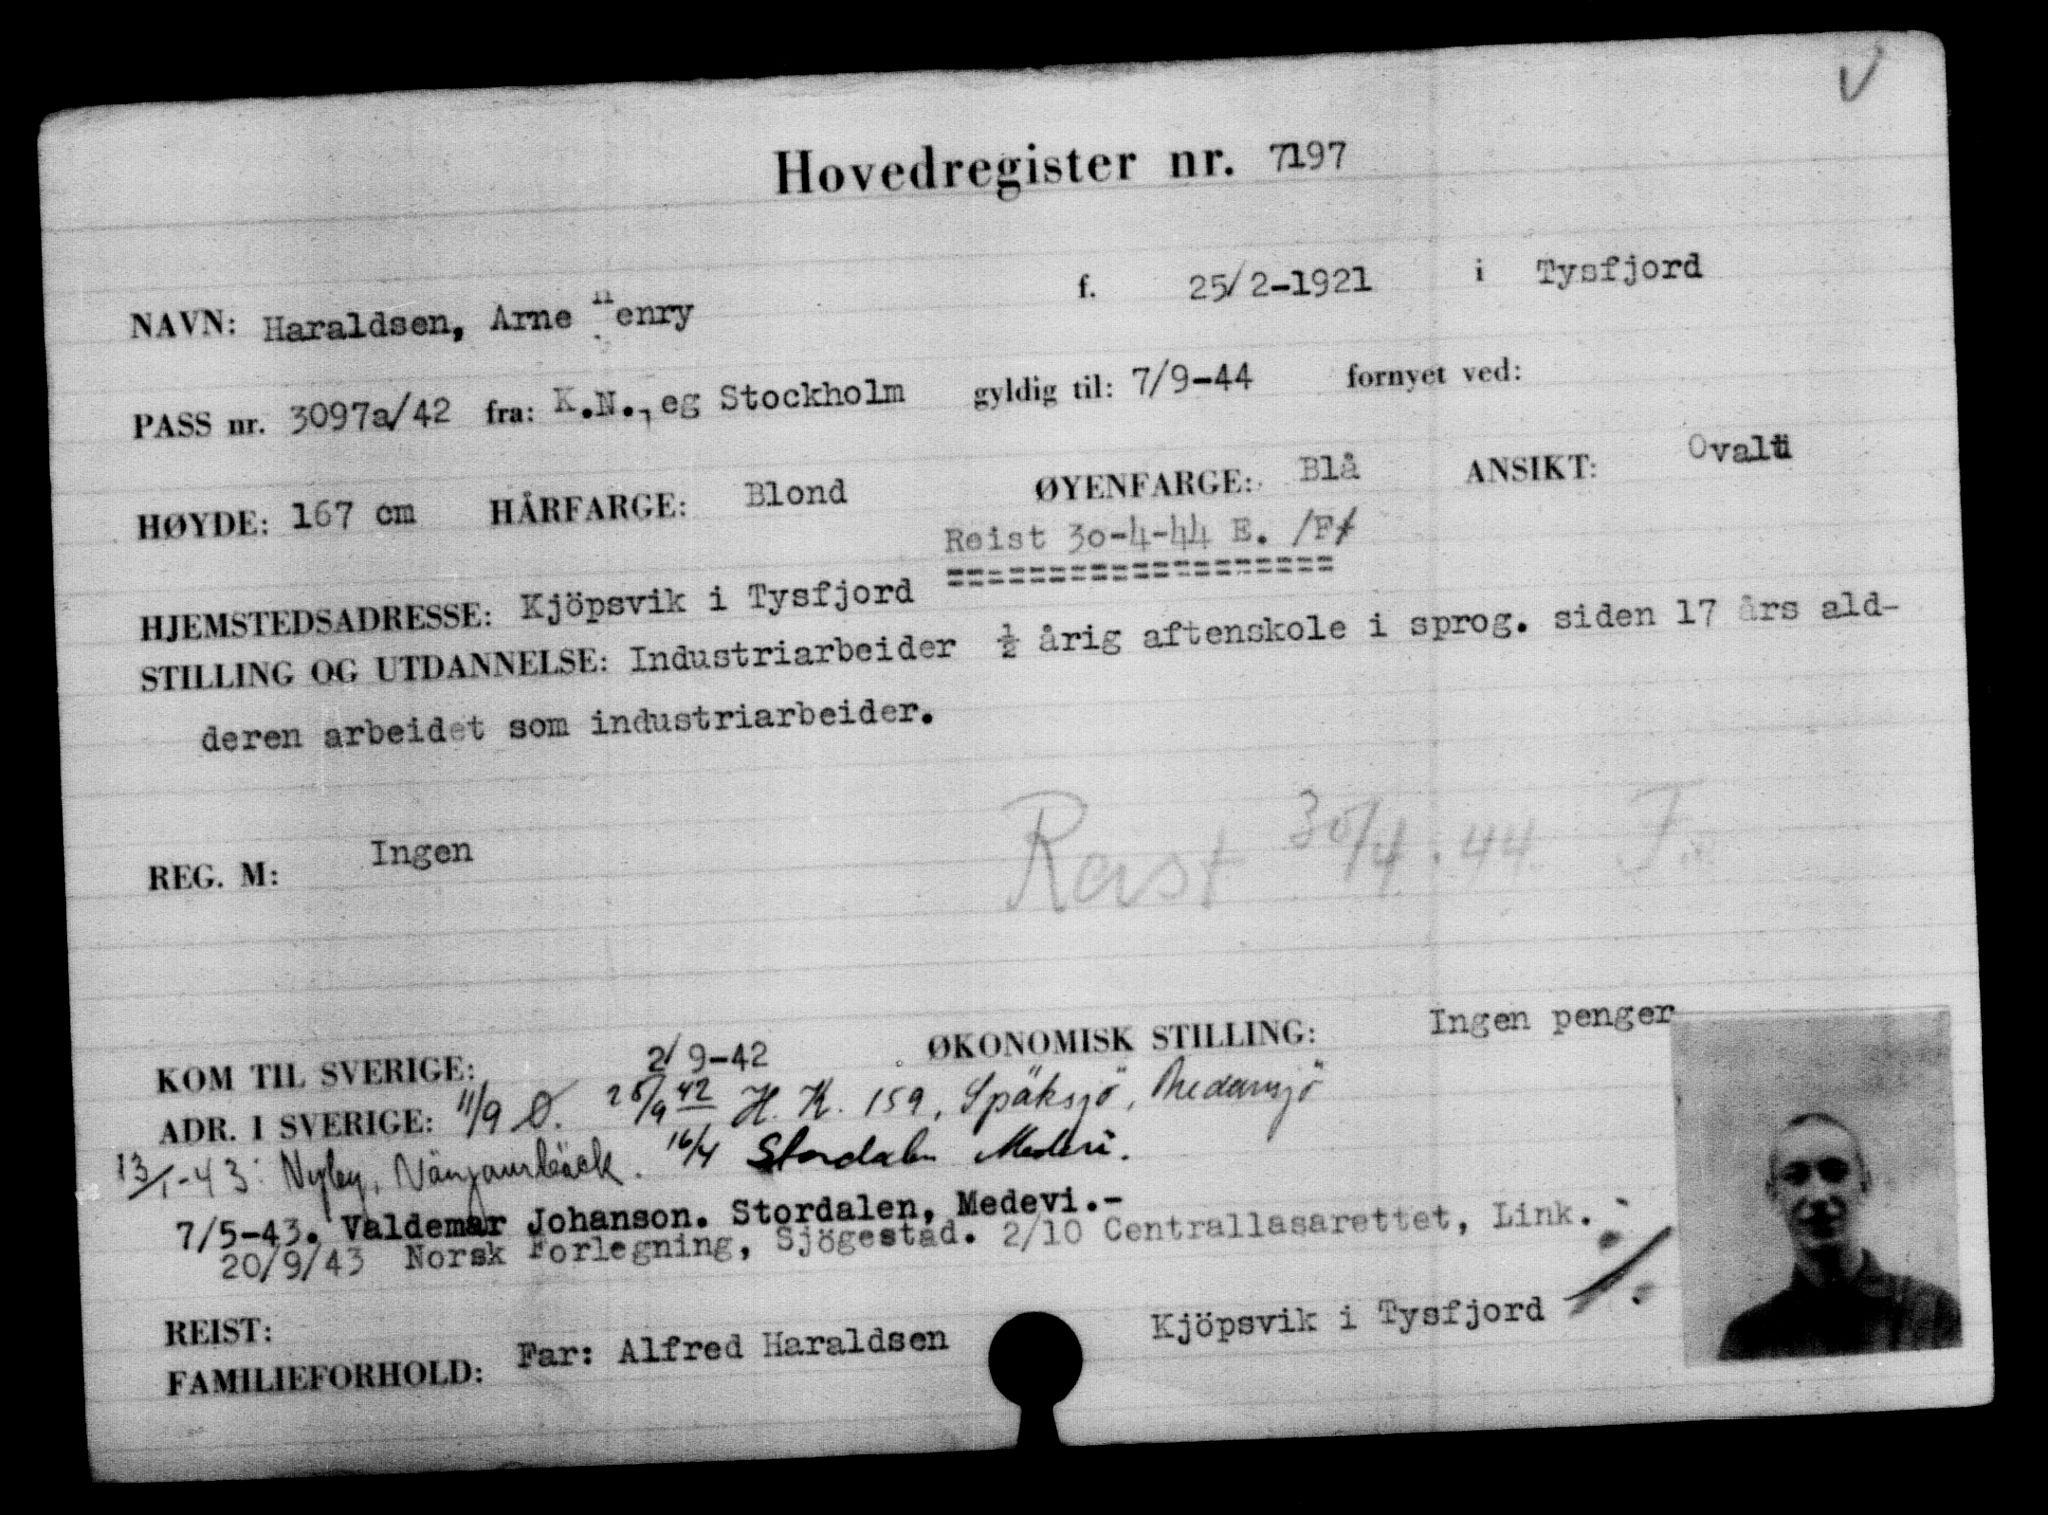 Hovedregister nr. 7197
NAVN: Haraldsen, Arne Henry f. 25/2-1921 i Tysfjord
PASS nr. 3097a/42 fra: K.N.,eg Stockholm gyldig til: 7/9-44 fornyet ved:
HØYDE: 167 cm HÅRFARGE: Blond ØYENFARGE: Blå ANSIKT: Ovalt
Reist 30-4-44 E. /F/
==================
HJEMSTEDSADRESSE: Kjöpsvik i Tysfjord
STILLING OG UTDANNELSE: Industriarbeider ½ årig aftenskole i sprog. siden 17 års ald-
deren arbeidet som industriarbeider.
REG. M: Ingen
Reist 30/4.44 F.
KOM TIL SVERIGE: 2/9-42 ØKONOMISK STILLING: Ingen penger
ADR. I SVERIGE: 11/9 Ø. 25/9 42 H. K. 159, Späksjö,
13/1-43: Nyby, 16/4 Stordalen Medevi.
7/5-43. Valdemar Johanson. Stordalen, Medevi.-
20/9/43 Norsk Forlegning, Sjögestad. 2/10 Centrallasarettet, Link.
REIST:
FAMILIEFORHOLD: Far: Alfred Haraldsen Kjöpsvik i Tysfjord